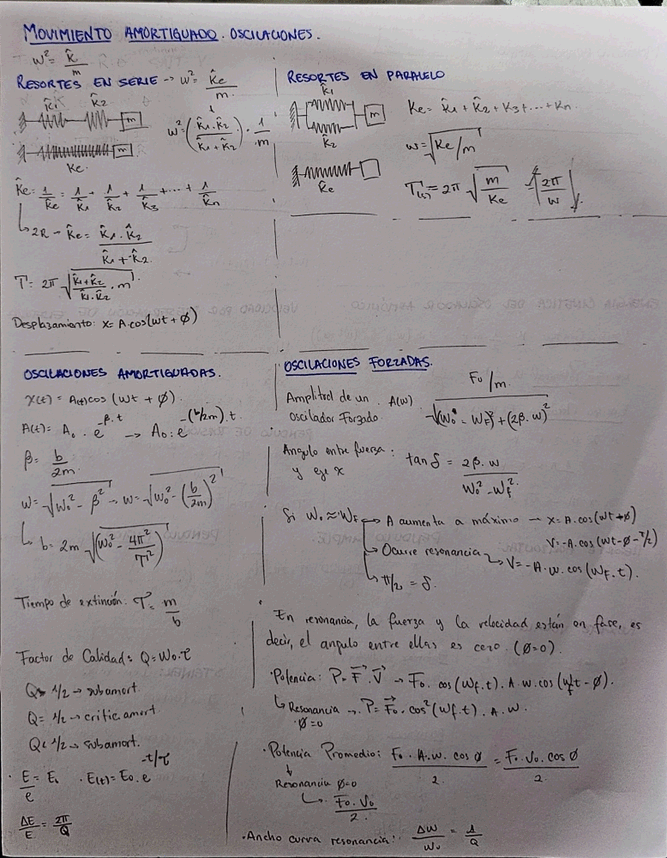 MOVIMIENTO AMORTIGUADO. OSCILACIONES.
w² = k̂/m
RESORTES EN SERIE → w² = k̂e/m
k̂1 k̂2
m
w² = (k̂1.k̂2/k̂1+k̂2) . 1/m
m
Ke
k̂e = 1/k̂e = 1/k̂1 + 1/k̂2 + 1/k̂3 + ... + 1/k̂n
↳ 2R → k̂e = k̂1.k̂2/k̂1+k̂2
T = 2π √(k̂1+k̂2/k̂1.k̂2 . m)
Desplazamiento: x = A.cos(wt + ϕ)
RESORTES EN PARALELO
k̂1
m
k̂2
k̂e
Ke = k̂1 + k̂2 + k3 + ... + kn
w = √Ke/m
T(s) = 2π √(m/Ke) 2π/w
OSCILACIONES AMORTIGUADAS.
X(t) = A(t) cos (wt + ϕ)
A(t) = A₀ . e^-β.t → A₀ . e^-(b/2m).t
β = b/2m
w = √(w₀² - β²) → w = √(w₀² - (b/2m)²)
↳ b = 2m √(w₀² - 4π²/T²)
Tiempo de extinción. τ = m/b
Factor de Calidad: Q = W₀.τ
Q 1/2 → subamort
Q = 1/2 → critic.amort
Q < 1/2 → subamort.
· E/e = E₀ · E(t) = E₀ . e^-t/τ
ΔE/E = 2π/Q
OSCILACIONES FORZADAS.
Amplitud de un oscilador Forzado A(w) F₀/m / √((W₀² - W_F²)² + (2β.w)²)
Angulo entre fuerza y eje x : tan δ = 2β.w / W₀² - W_f²
Si W₀ ≈ W_F → A aumenta a máximo → x = A.cos(wt+ϕ)
V = -A.cos(wt-ϕ-π/2)
→ Ocurre resonancia → V = -A.w.cos(W_F.t).
→ π/2 = δ.
En resonancia, la fuerza y la velocidad están en fase, es
decir, el angulo entre ellas es cero. (ϕ=0).
· Potencia: P = F⃗ . V⃗ → F₀. cos(W_f.t). A.w.cos(w_f t - ϕ).
↳ Resonancia → P = F₀.cos²(W_f.t). A.w.
ϕ=0
· Potencia Promedio: F₀.A.w.cos ϕ/2 = F₀.V₀.cos ϕ/2
Resonancia ϕ=0
↳ F₀.V₀/2
· Ancho curva resonancia: Δw/W₀ = 1/Q